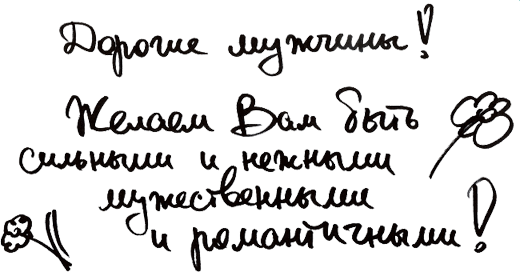 Дорогие мужчины!
Желаем Вам быть
сильными и нежными
мужественными
и романтичными!